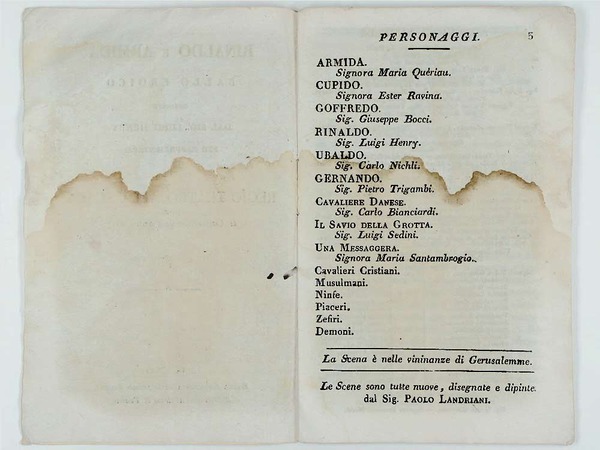 PERSONAGGI. 5
ARMIDA.
Signora Maria Quériau.
CUPIDO.
Signora Ester Ravina.
GOFFREDO.
Sig. Giuseppe Bocci.
RINALDO.
Sig. Luigi Henry.
UBALDO.
Sig. Carlo Nichli.
GERNANDO.
Sig. Pietro Trigambi.
CAVALIERE DANESE.
Sig. Carlo Bianciardi.
IL SAVIO DELLA GROTTA.
Sig. Luigi Sedini.
UNA MESSAGGERA.
Signora Maria Santambrogio.
Cavalieri Cristiani.
Musulmani.
Ninfe.
Piaceri.
Zefiri.
Demoni.
La Scena è nelle vininanze di Gerusalemme.
Le Scene sono tutte nuove, disegnate e dipinte
dal Sig. PAOLO LANDRIANI.